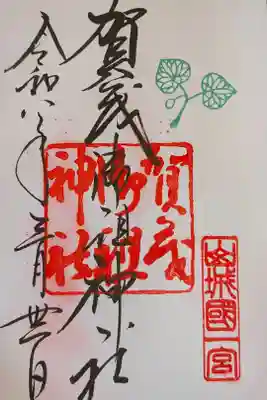 山城國一宮
賀茂御祖神社
賀茂御祖神社
令和八年三月廿日